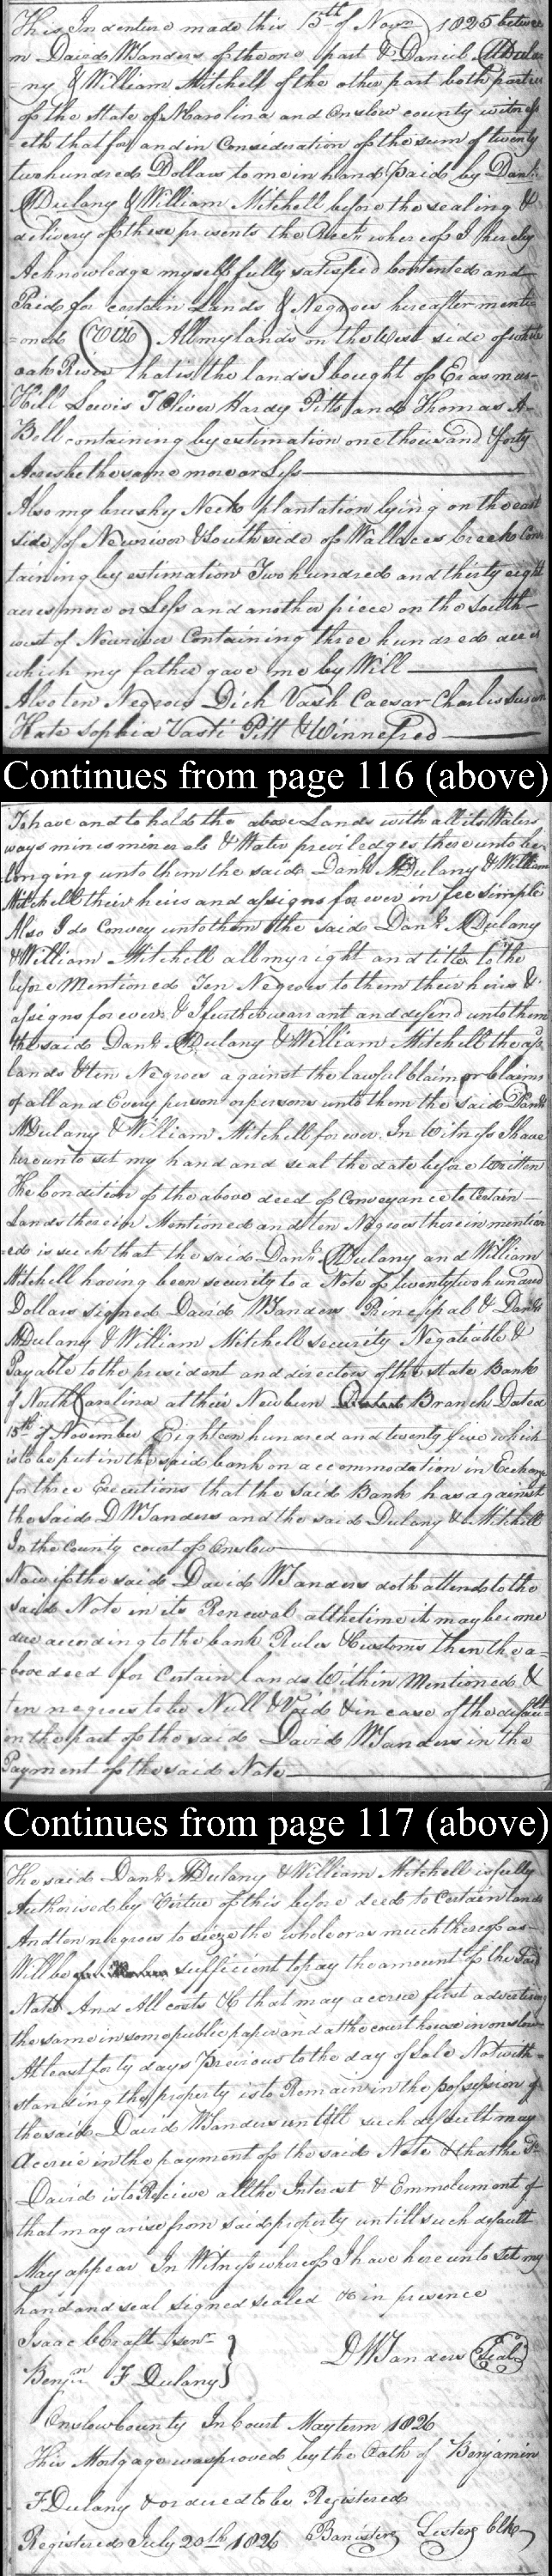 This Indenture made this 15th of Novr 1825 betwee
n David W Sanders of the one part & Daniel M Dula
-ny & William Mitchell of the other part both parties
of the State of N Carolina and Onslow county witness
-eth that for and in Consideration of the sum of twenty
two hundred Dollars to me in hand Paid by Danl.
M Dulany & William Mitchell before the sealing &
delivery of these presents the Rect. whereof I hereby
Acknowledge myself fully satisfied Contented and
Paid for certain Lands & Negroes hereafter menti
=oned (Viz) All my lands on the West side of white
oak River that is the lands I bought of Erasmus
Hill Lewis T Oliver Hardy Pitts and Thomas A.
Bell containing by estimation one thousand & forty
Acres be the same more or Less
Also my brushy Neck plantation lying on the east
side of Newriver & South side of Wallaces creek Con
taining by estimation Two hundred and thirty eight
acres more or Less and another piece on the South-
west of Newriver Containing three hundred acres
which my father gave me by Will
Also ten Negroes Dick Vash Caesar Charles Susan
Kate Sophia Vasti Pitt & Winnefred
Continues from page 116 (above)
To have and to hold the above Lands with all its Waters
ways mines minerals & Water priviledges thereunto be
longing unto them the said Danl. M Dulany & William
Mitchell their heirs and assigns for ever in fee simple
Also I do Convey unto them the said Danl. M Dulany
& William Mitchell all my right and title to the
before Mentioned Ten Negroes to them their heirs &
assigns for ever & I further warrant and defend unto them
the said Danl. M Dulany & William Mitchell the afs.
lands & ten Negroes against the lawful claim or claims
of all and Every person or persons unto them the said Danl.
M Dulany & William Mitchell for ever. In Witness I have
hereunto set my hand and seal the date before Written
The Condition of the above deed of Conveyance to Certain
Lands therein Mentioned and ten Negroes therein mention
-ed is such that the said Danl. M Dulany and William
Mitchell having been security to a Note of twenty two hundred
Dollars signed David W Sanders Principal & Danl.
M Dulany & William Mitchell security Negotiable &
Payable to the president and directors of the State Bank
of North Carolina at their Newbern Branch Dated
15th of November Eighteen hundred and twenty five which
is to be put in the said bank on accommodation in Exchange
for three Executions that the said Bank has against
the said D W Sanders and the said Dulany & Mitchell
In the County court of Onslow
Now if the said David W Sanders doth attend to the
said Note in its Renewal at the time it may become
due according to the bank Rules & Customs then the a-
bove deed for Certain lands Within Mentioned &
ten negroes to be Null & Void & in case of the default
on the part of the said David W Sanders in the
Payment of the said Note
Continues from page 117 (above)
The said Danl. M Dulany & William Mitchell is fully
Authorised by Virtue of this before deed to Certain lands
And ten negroes to sieze the whole or as much thereof as
Will be sufficient to pay the amount of the said
Note And All costs &c that may accrue first advertising
the same in some public paper and at the court house in onslow
At least forty days Previous to the day of Sale Notwith=
standing the property is to Remain in the possession of
the said David W Sanders untill such default may
Accrue in the payment of the said Note & that the sd.
David is to Recieve all the Interest & Emmolument of
that may arise from said property untill such default
May appear In Witness whereof I have here unto set my
hand and seal signed sealed &c in presence
Isaac C Craft Senr. }
D W Sanders (Seal)
Benjn F Dulany }
Onslow County In Court May term 1826
This Mortgage was proved by the Oath of Benjamin
F Dulany & ordered to be Registered
Registered July 20th, 1826 Banister Lester Clk